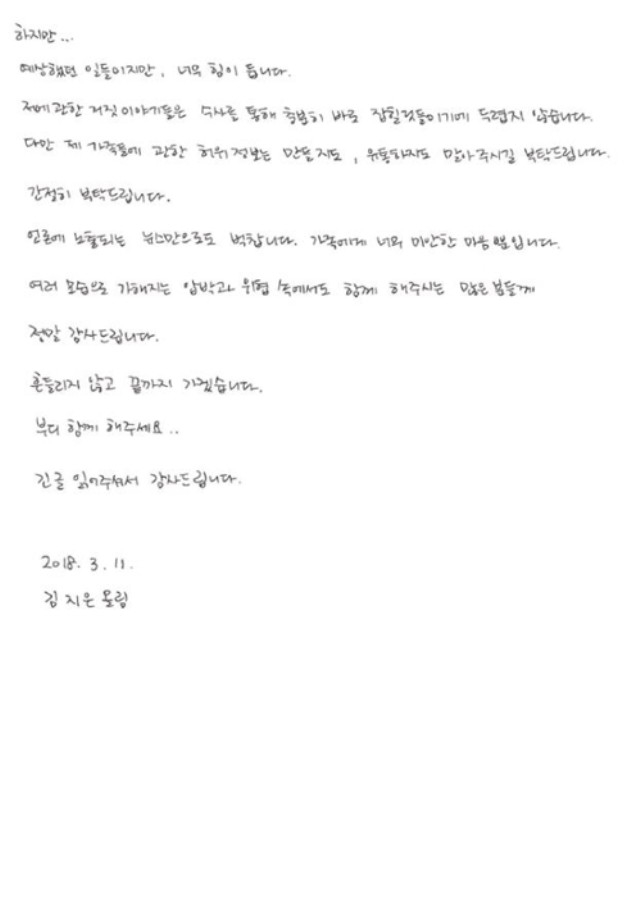 하지만...
예상했던 일들이지만, 너무 힘이 듭니다.
저에 관한 거짓 이야기들은 수사를 통해 충분히 바로 잡힐것들이기에 두렵지 않습니다.
다만 제 가족들에 관한 허위 정보는 만들지도, 유통하지도 말아주시길 부탁드립니다.
간절히 부탁드립니다.
언론에 노출되는 뉴스만으로도 벅찹니다. 가족에게 너무 미안한 마음 뿐입니다.
여러 모습으로 가해지는 압박과 위협 속에서도 함께 해주시는 많은 분들께
정말 감사드립니다.
흔들리지 않고 끝까지 가겠습니다.
부디 함께 해주세요..
긴글 읽어주셔서 감사드립니다.
2018. 3. 11.
김지은 올림